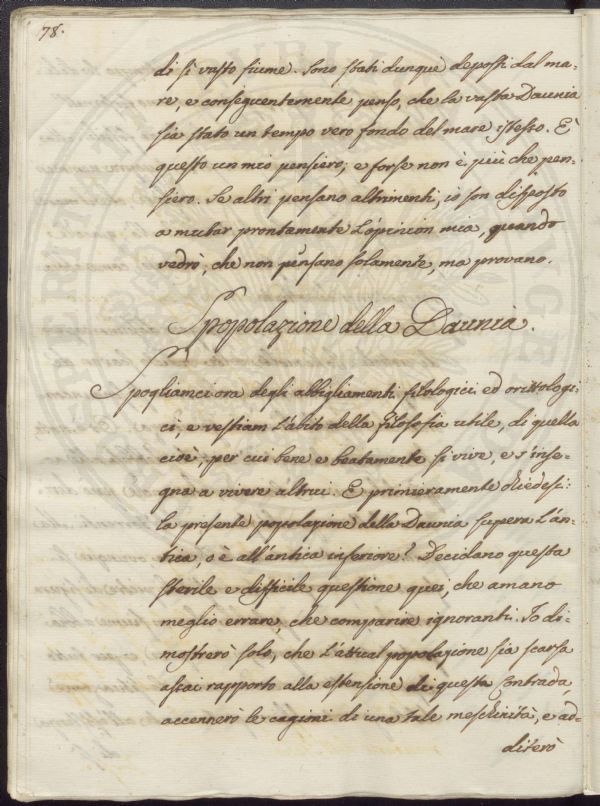 78.
di sì vasto fiume. Sono stati dunque deposti dal ma-
re, e conseguentemente penso, che la vasta Daunia
sia stato un tempo vero fondo del mare istesso. È
questo un mio pensiero; e forse non è più che pen-
siero. Se altri pensano altrimenti, io son disposto
a mutar prontamente l'opinion mia, quando
vedrò, che non pensano solamente, ma provano.
Spopolazione della Daunia.
Spogliamci ora degli abbigliamenti filologici ed orittologi-
ci, e vestiam l'abito della filosofia utile, di quella
cioè, per cui bene e beatamente si vive, e s'inse-
gna a vivere altrui. E primieramente chiedesi:
la presente popolazione della Daunia supera l'an-
tica, o è all'antica inferiore? Decidano questa
sterile e difficile questione quei, che amano
meglio errare, che comparire ignoranti. Io di-
mostrerò solo, che l'attual popolazione sia scarsa
assai rapporto alla estensione di questa contrada,
accennerò le cagioni di una tale meschinità, e ad-
diterò